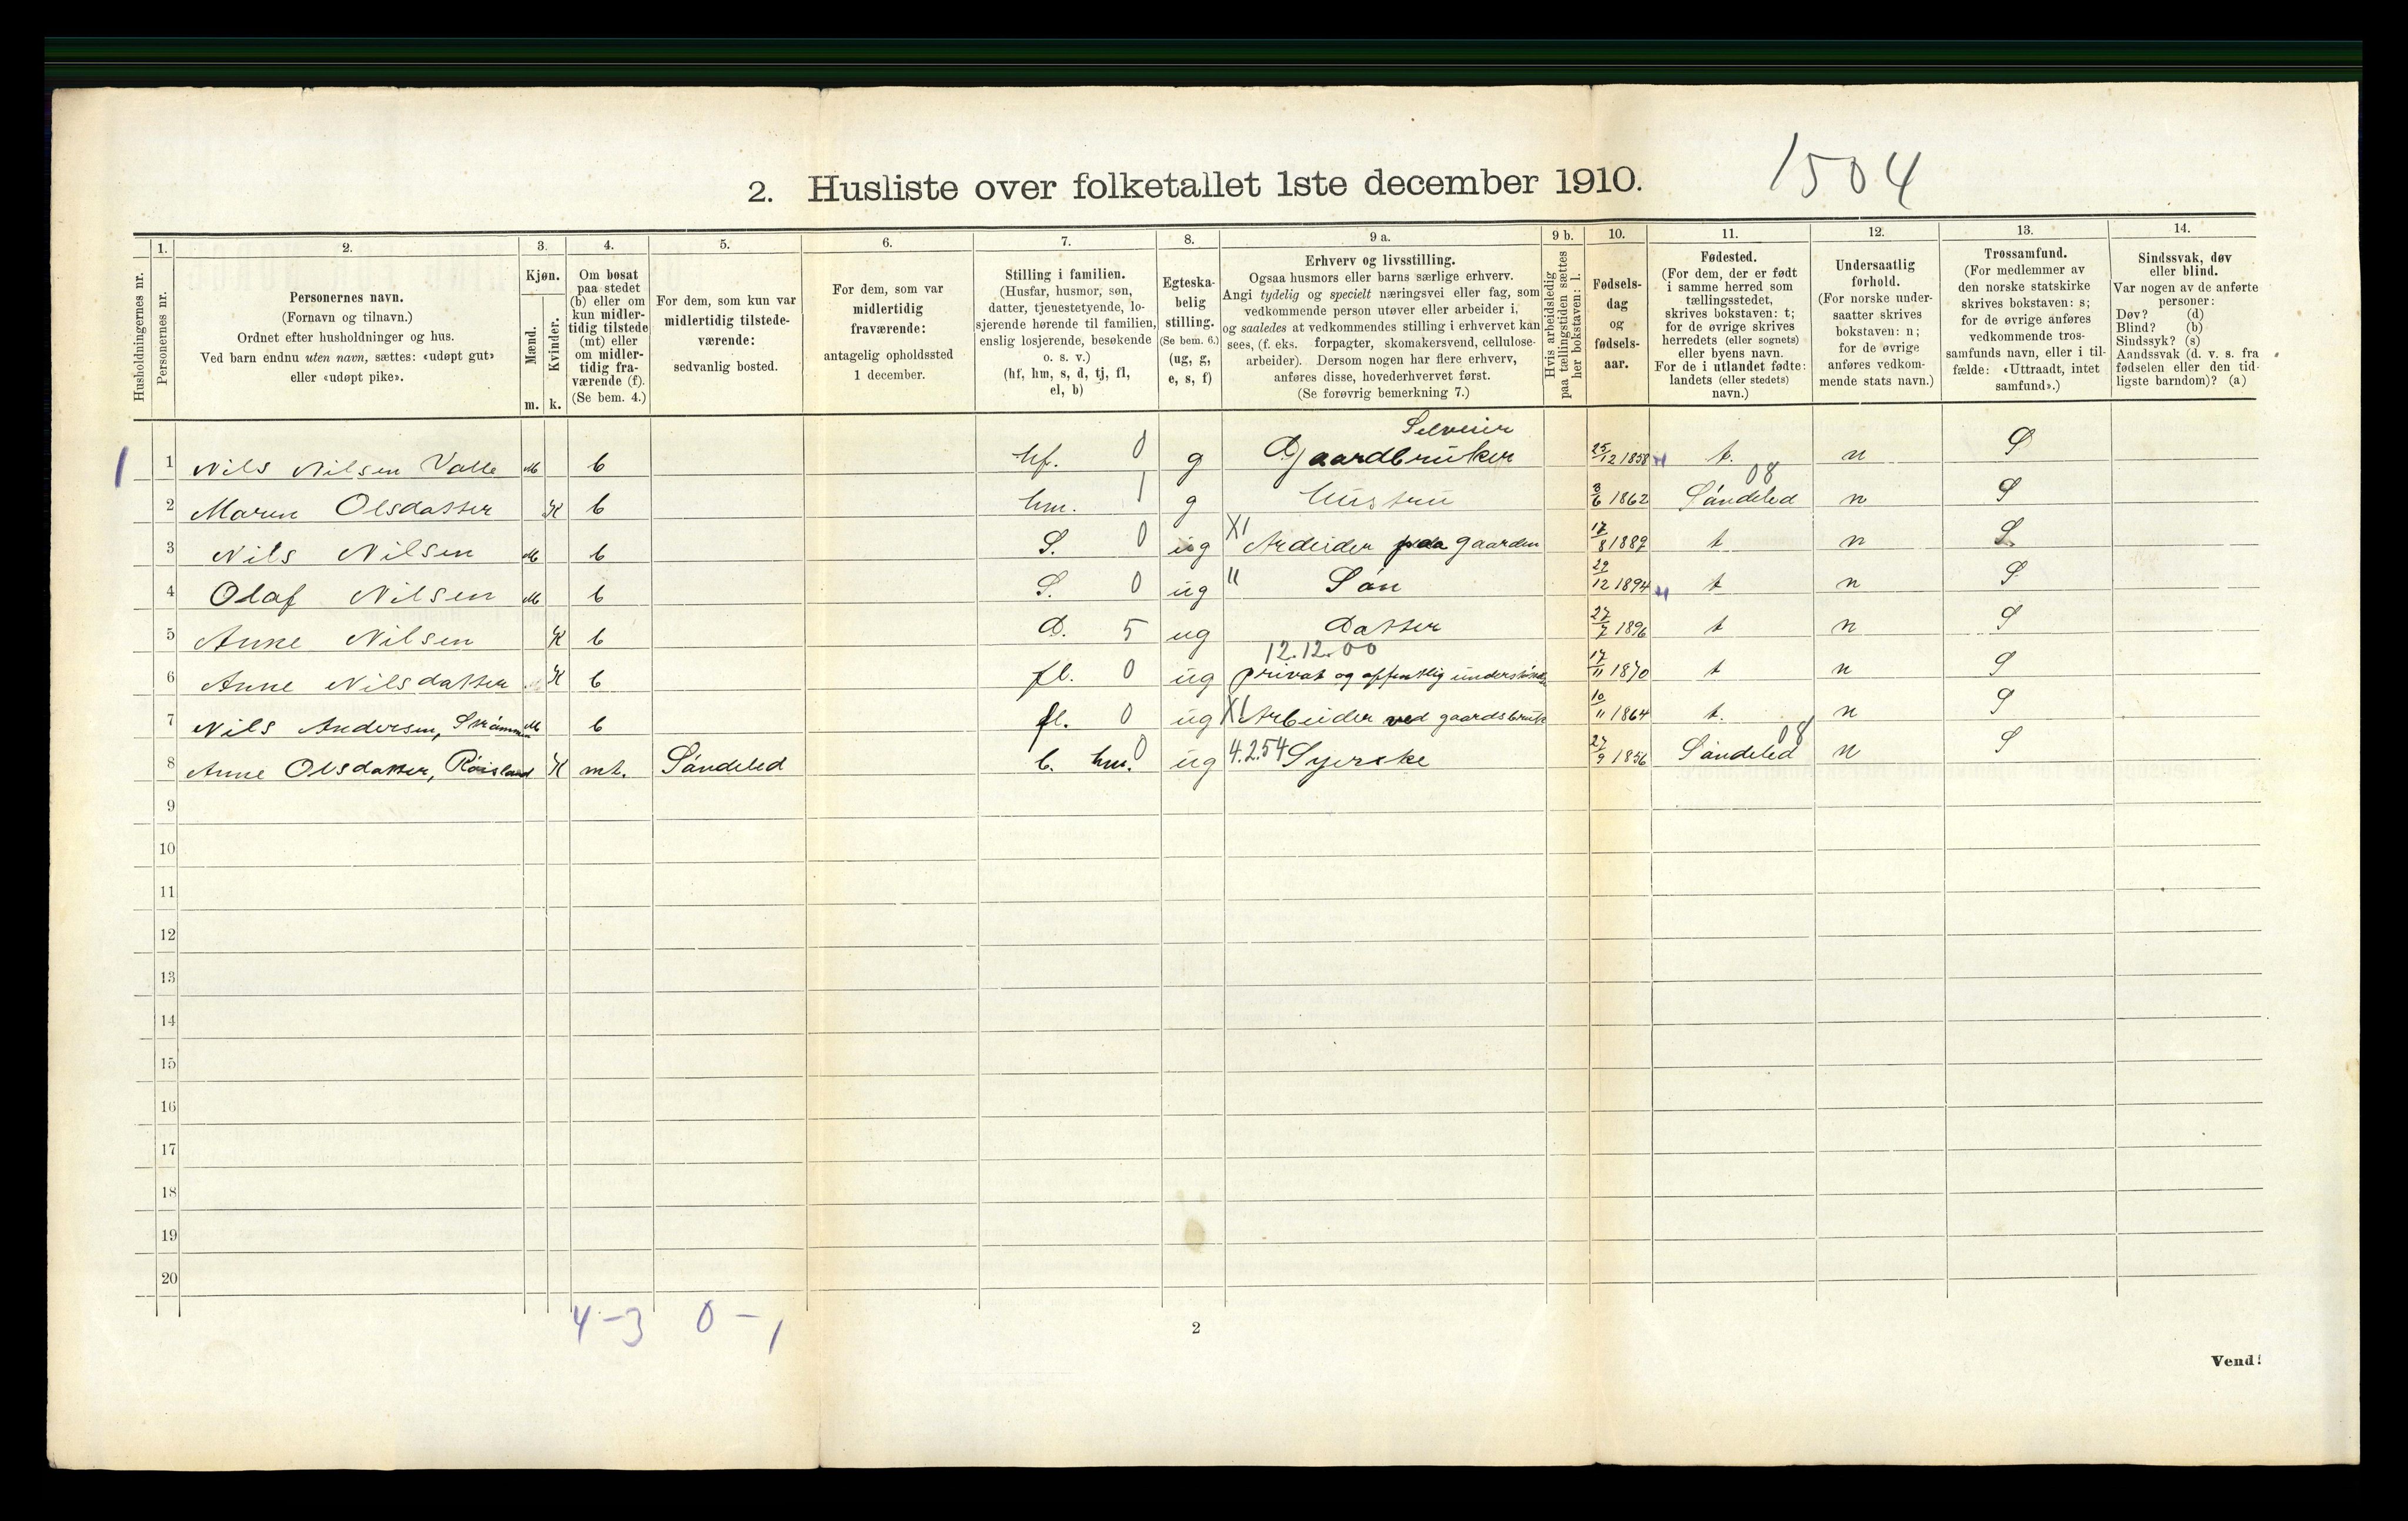 1504
2. Husliste over folketallet 1ste december 1910.
Husholdningernes nr.
1.
Personernes nr.
2.
Personernes navn.
(Fornavn og tilnavn.)
Ordnet efter husholdninger og hus.
Ved barn endnu uten navn, sættes: «udøpt gut»
eller «udøpt pike».
3.
Kjøn.
Mænd.
Kvinder.
m. k.
4.
Om bosat
paa stedet
(b) eller om
kun midler-
tidig tilstede
(mt) eller
om midler-
tidig fra-
værende (f).
(Se bem. 4.)
5.
For dem, som kun var
midlertidig tilstede-
værende:
sedvanlig bosted.
6.
For dem, som var
midlertidig
fraværende:
antagelig opholdssted
1 december.
7.
Stilling i familien.
(Husfar, husmor, søn,
datter, tjenestetyende, lo-
sjerende hørende til familien,
enslig losjerende, besøkende
o. s. v.)
(hf, hm, s, d, tj, fl,
el, b)
8.
Egteska-
belig
stilling.
(Se bem. 6.)
(ug, g,
e, s, f)
9 a.
Erhverv og livsstilling.
Ogsaa husmors eller barns særlige erhverv.
Angi tydelig og specielt næringsvei eller fag, som
vedkommende person utøver eller arbeider i,
og saaledes at vedkommendes stilling i erhvervet kan
sees, (f. eks. forpagter, skomakersvend, cellulose-
arbeider). Dersom nogen har flere erhverv,
anføres disse, hovederhvervet først.
(Se forøvrig bemerkning 7.)
9 b.
Hvis arbeidsledig
paa tællingstiden sættes
her bokstaven: l.
10.
Fødsels-
dag
og
fødsels-
aar.
11.
Fødested.
(For dem, der er født
i samme herred som
tællingsstedet,
skrives bokstaven: t;
for de øvrige skrives
herredets (eller sognets)
eller byens navn.
For de i utlandet fødte:
landets (eller stedets)
navn.)
12.
Undersaatlig
forhold.
(For norske under-
saatter skrives
bokstaven: n;
for de øvrige
anføres vedkom-
mende stats navn.)
13.
Trossamfund.
(For medlemmer av
den norske statskirke
skrives bokstaven: s;
for de øvrige anføres
vedkommende tros-
samfunds navn, eller i til-
fælde: «Uttraadt, intet
samfund».)
14.
Sindssvak, døv
eller blind.
Var nogen av de anførte
personer:
Døv? (d)
Blind? (b)
Sindssyk? (s)
Aandssvak (d. v. s. fra
fødselen eller den tid-
ligste barndom)? (a)
Selveier
1 1 Nils Nilsen Valle M b hf. 0 g Gaardbruker 25/12 1858 t. n S
08
2 Maren Olsdatter K b hm. 1 g Hustru 3/6 1862 Søndeled n S
3 Nils Nilsen M b S. 0 ug XI Arbeider paa gaarden 17/8 1889 t n S
4 Olaf Nilsen M b S. 0 ug " Søn 29/12 1894 t n S
5 Anne Nilsen K b D. 5 ug Datter 27/7 1896 t n S
12.12.00
6 Anne Nilsdatter K b fl. 0 ug privat og offentlig 17/11 1870 t n S
7 Nils Andersen, M b fl. 0 ug XI Arbeider ved gaardsbruk 10/11 1864 t. n S
08
8 Anne Olsdatter, Røisland K mt. Søndeled b. hm. 0 ug 4.2.54 Syerske 27/9 1856 Søndeled n S
9
10
11
12
13
14
15
16
17
18
19
20
4-3 0-1
2
Vend!